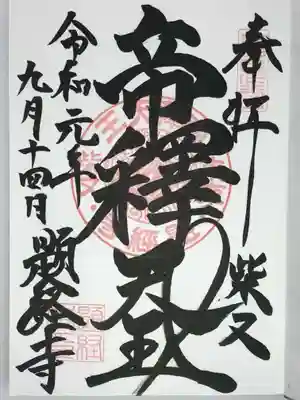 奉拝 柴又
帝釋天王
令和元年
九月十四日 題経寺